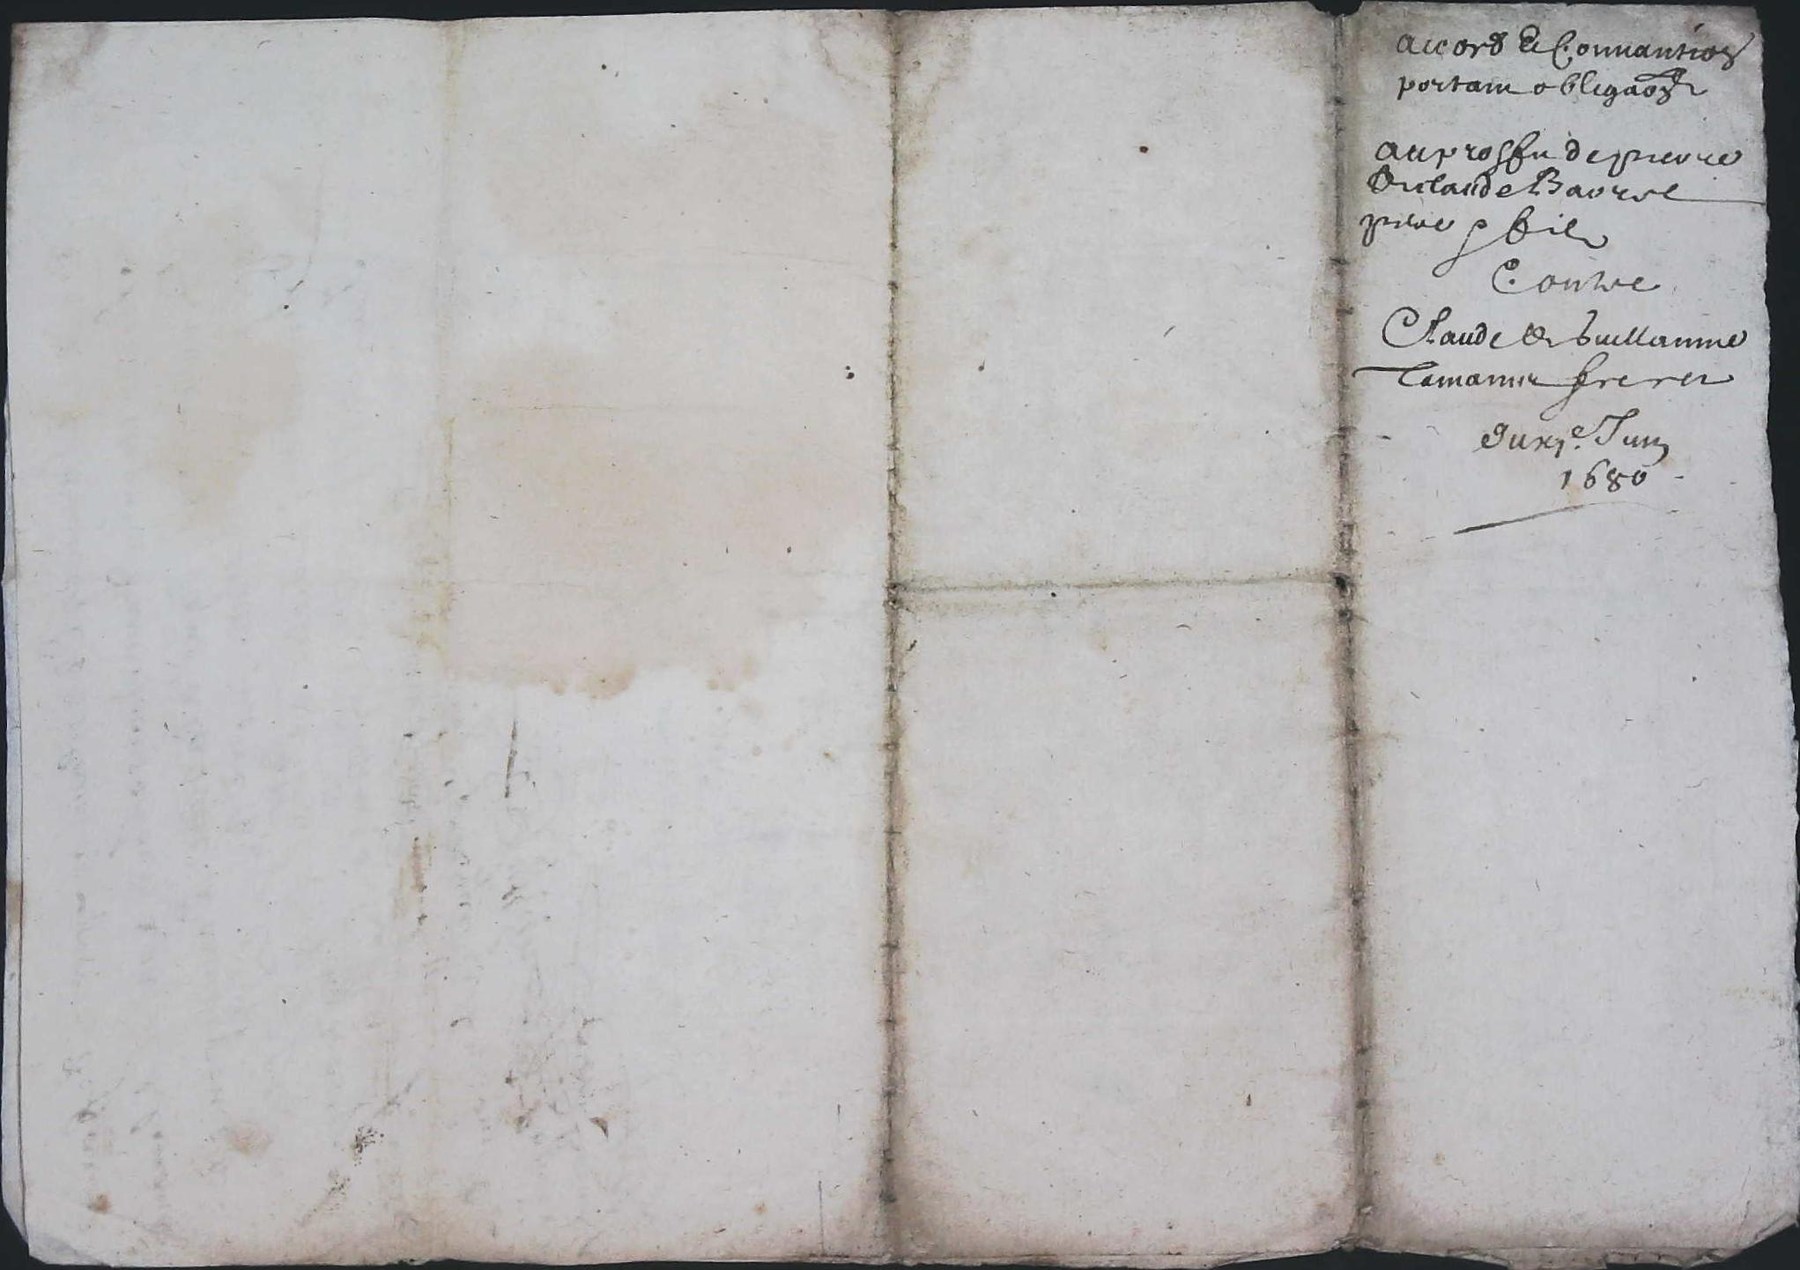 accord & Connantion
portam obligaon
au proffit de pierre
& claude Bavrel
pere & fils
Contre
Claude & Guillaume
Lamanne freres
du xje Juin
1680